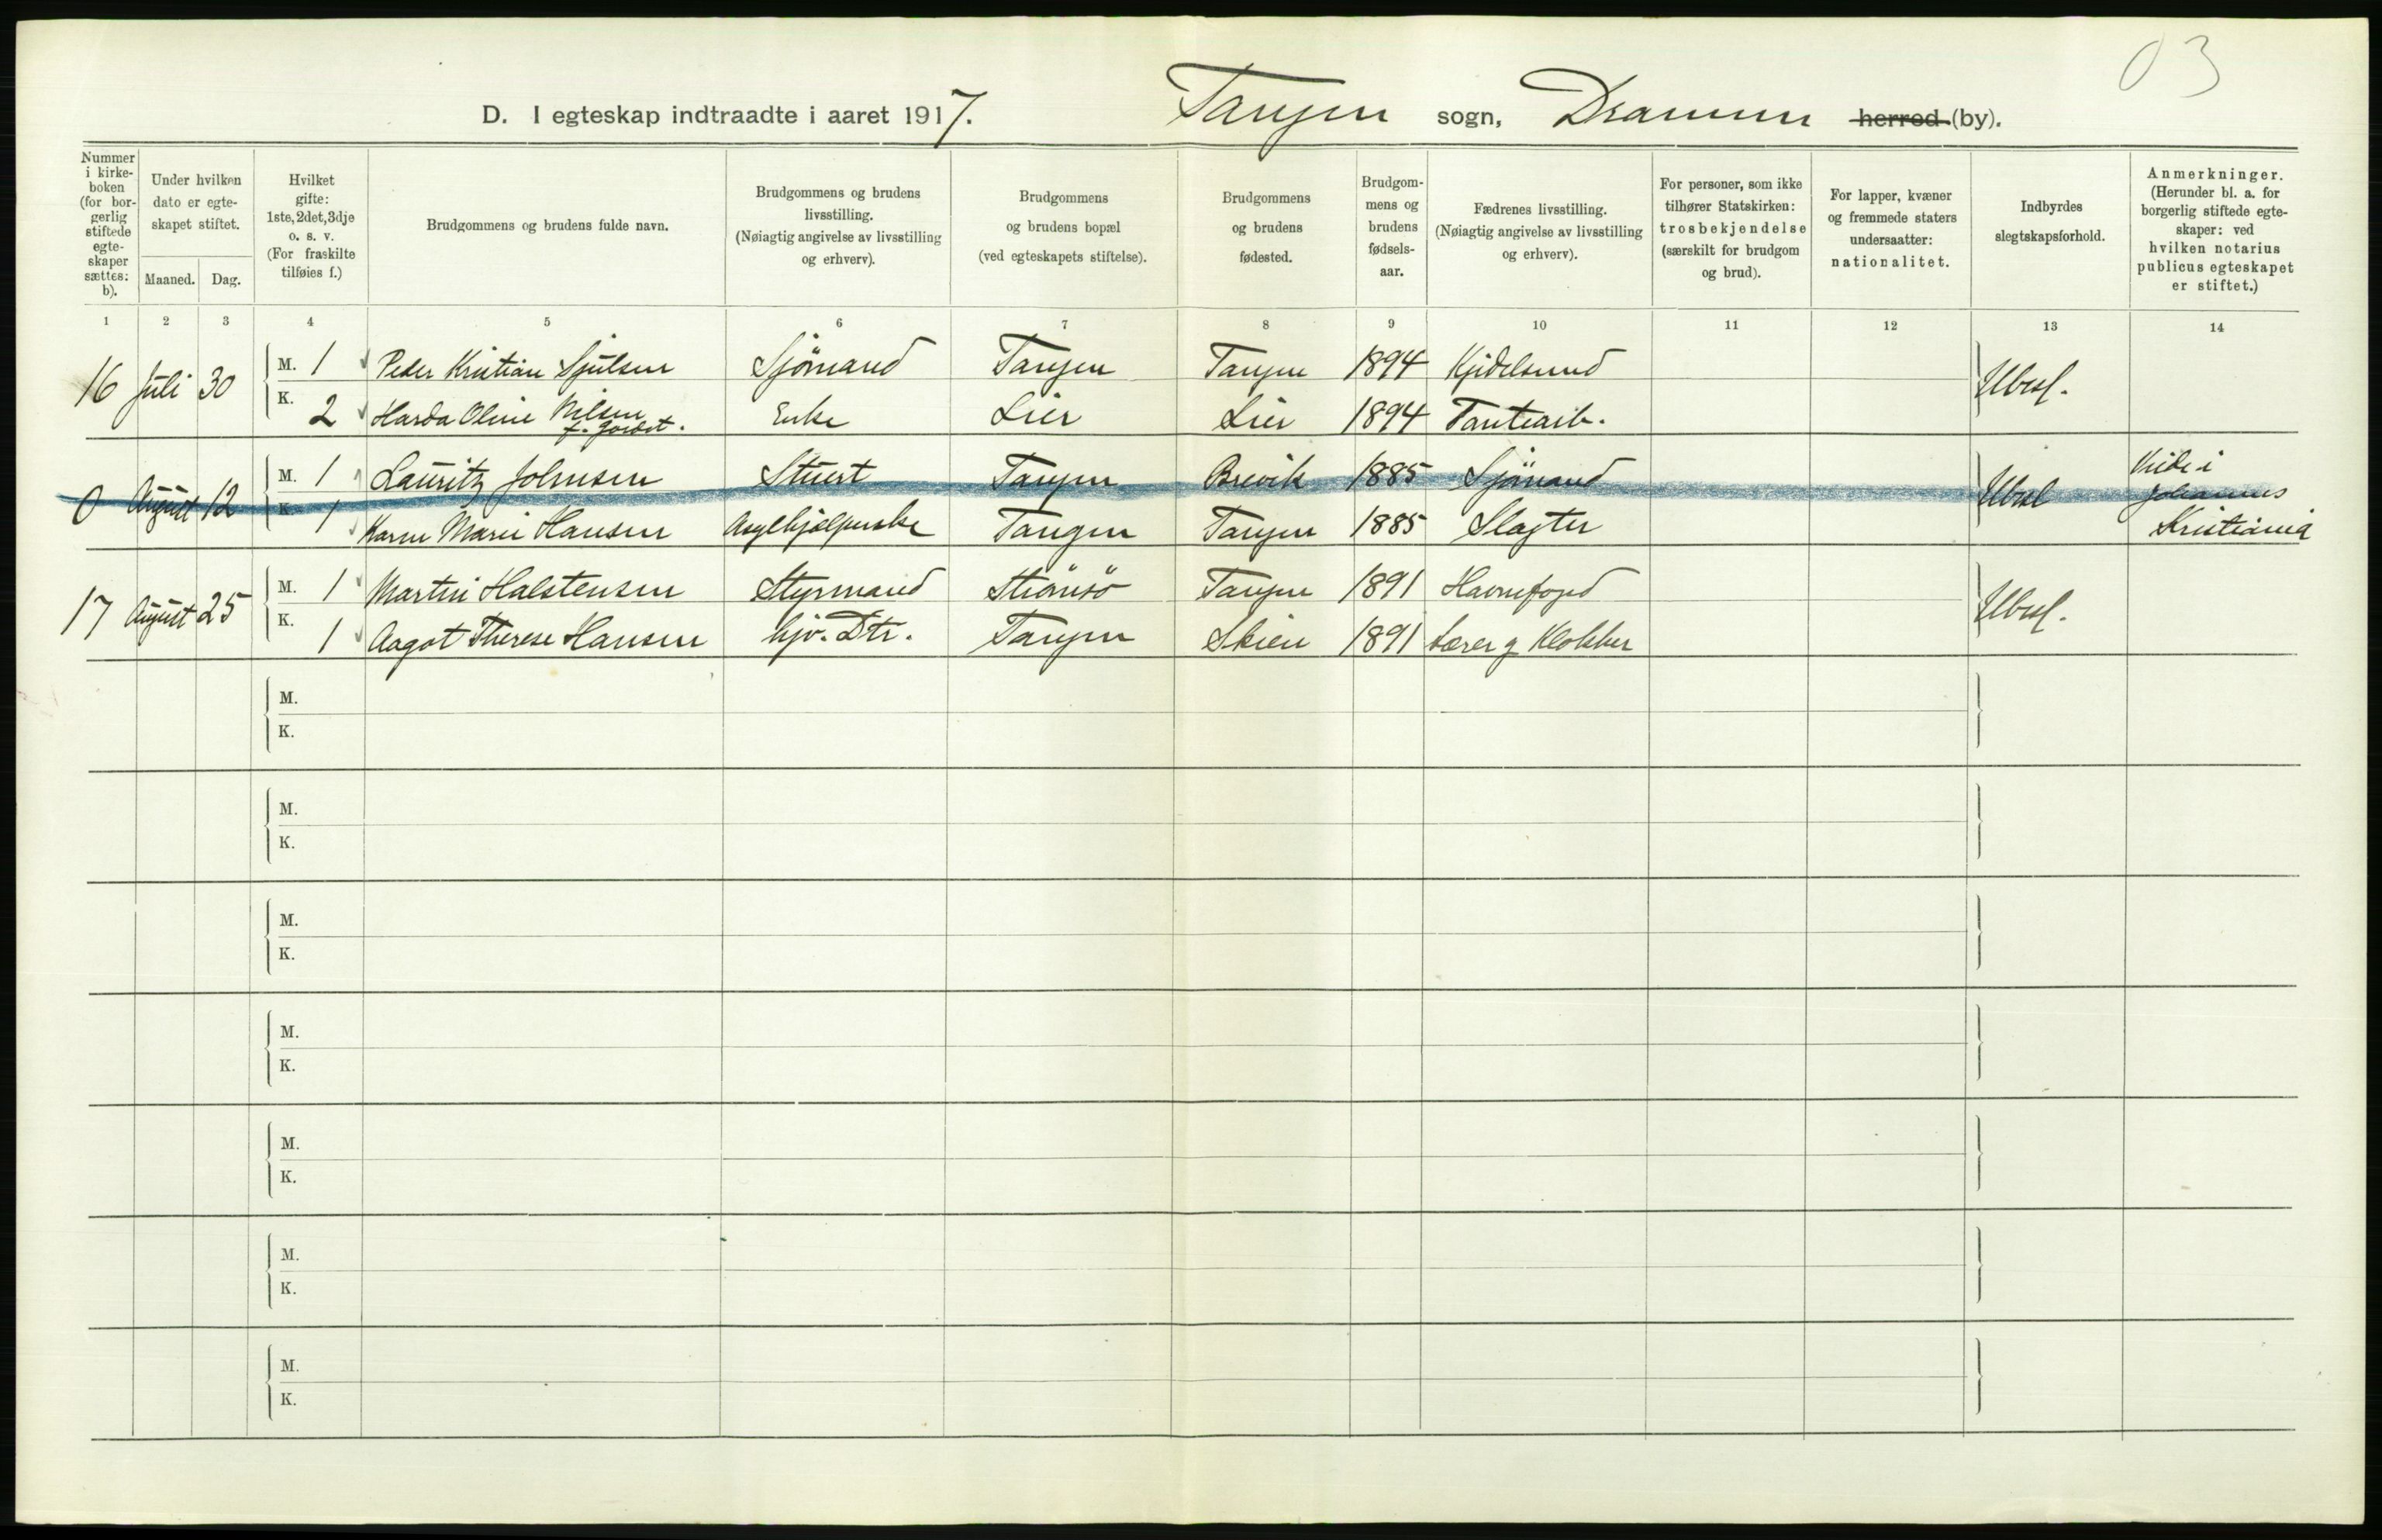 03
D. I egteskap indtraadte i aaret 1917. Tangen sogn, Drammen herred (by).
Nummer i kirke-boken (for bor-gerlig stiftede egte-skaper sættes: b).
Under hvilken dato er egte-skapet stiftet.
Maaned. Dag.
Hvilket gifte: 1ste, 2det, 3dje o. s. v. (For fraskilte tilføies f.)
Brudgommens og brudens fulde navn.
Brudgommens og brudens livsstilling. (Nøiagtig angivelse av livsstilling og erhverv).
Brudgommens og brudens bopæl (ved egteskapets stiftelse).
Brudgommens og brudens fødested.
Brudgom-mens og brudens fødsels-aar.
Fædrenes livsstilling. (Nøiagtig angivelse av livsstilling og erhverv).
For personer, som ikke tilhører Statskirken: trosbekjendelse (særskilt for brudgom og brud).
For lapper, kvæner og fremmede staters undersaatter: nationalitet.
Indbyrdes slegtskapsforhold.
Anmerkninger. (Herunder bl. a. for borgerlig stiftede egte-skaper: ved hvilken notarius publicus egteskapet er stiftet.)
1 2 3 4 5 6 7 8 9 10 11 12 13 14
16 Juli 30 M. 1 Peder Kristian Sjulsen Sjömand Tangen Tangen 1894 Ubesl.
K. 2 Harda Oline Nilsen Enke Lier Lier 1894
0 August 12 M. 1 Lauritz Johnsen Stuert Tangen Brevik 1885 Sjömand Ubesl Viede i Johannes
K. 1 Karen Marie Hansen Asylhjælperske Tangen Tangen 1885 Slagter Kristiania
17 August 25 M. 1 Martin Halstensen Styrmand Strömsö Tangen 1891 Havnefoged Ubesl.
K. 1 Aagot Therese Hansen hjv. Dtr. Tangen Skien 1891 Lærer og Klokker
M.
K.
M.
K.
M.
K.
M.
K.
M.
K.
M.
K.
M.
K.